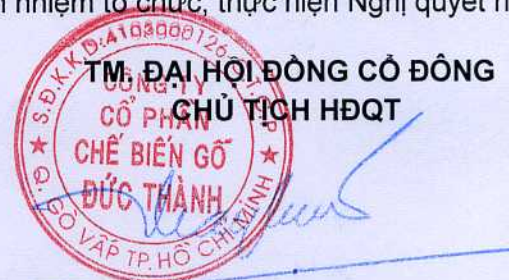 nhiệm tổ chức, thực hiện Nghị quyết n
TM. ĐẠI HỘI ĐỒNG CỔ ĐÔNG
CHỦ TỊCH HĐQT
S.Đ.K.K.D:4103000126
CÔNG TY
CỔ PHẦN
CHẾ BIẾN GỖ
ĐỨC THÀNH
Q. GÒ VẤP TP. HỒ CHÍ MINH